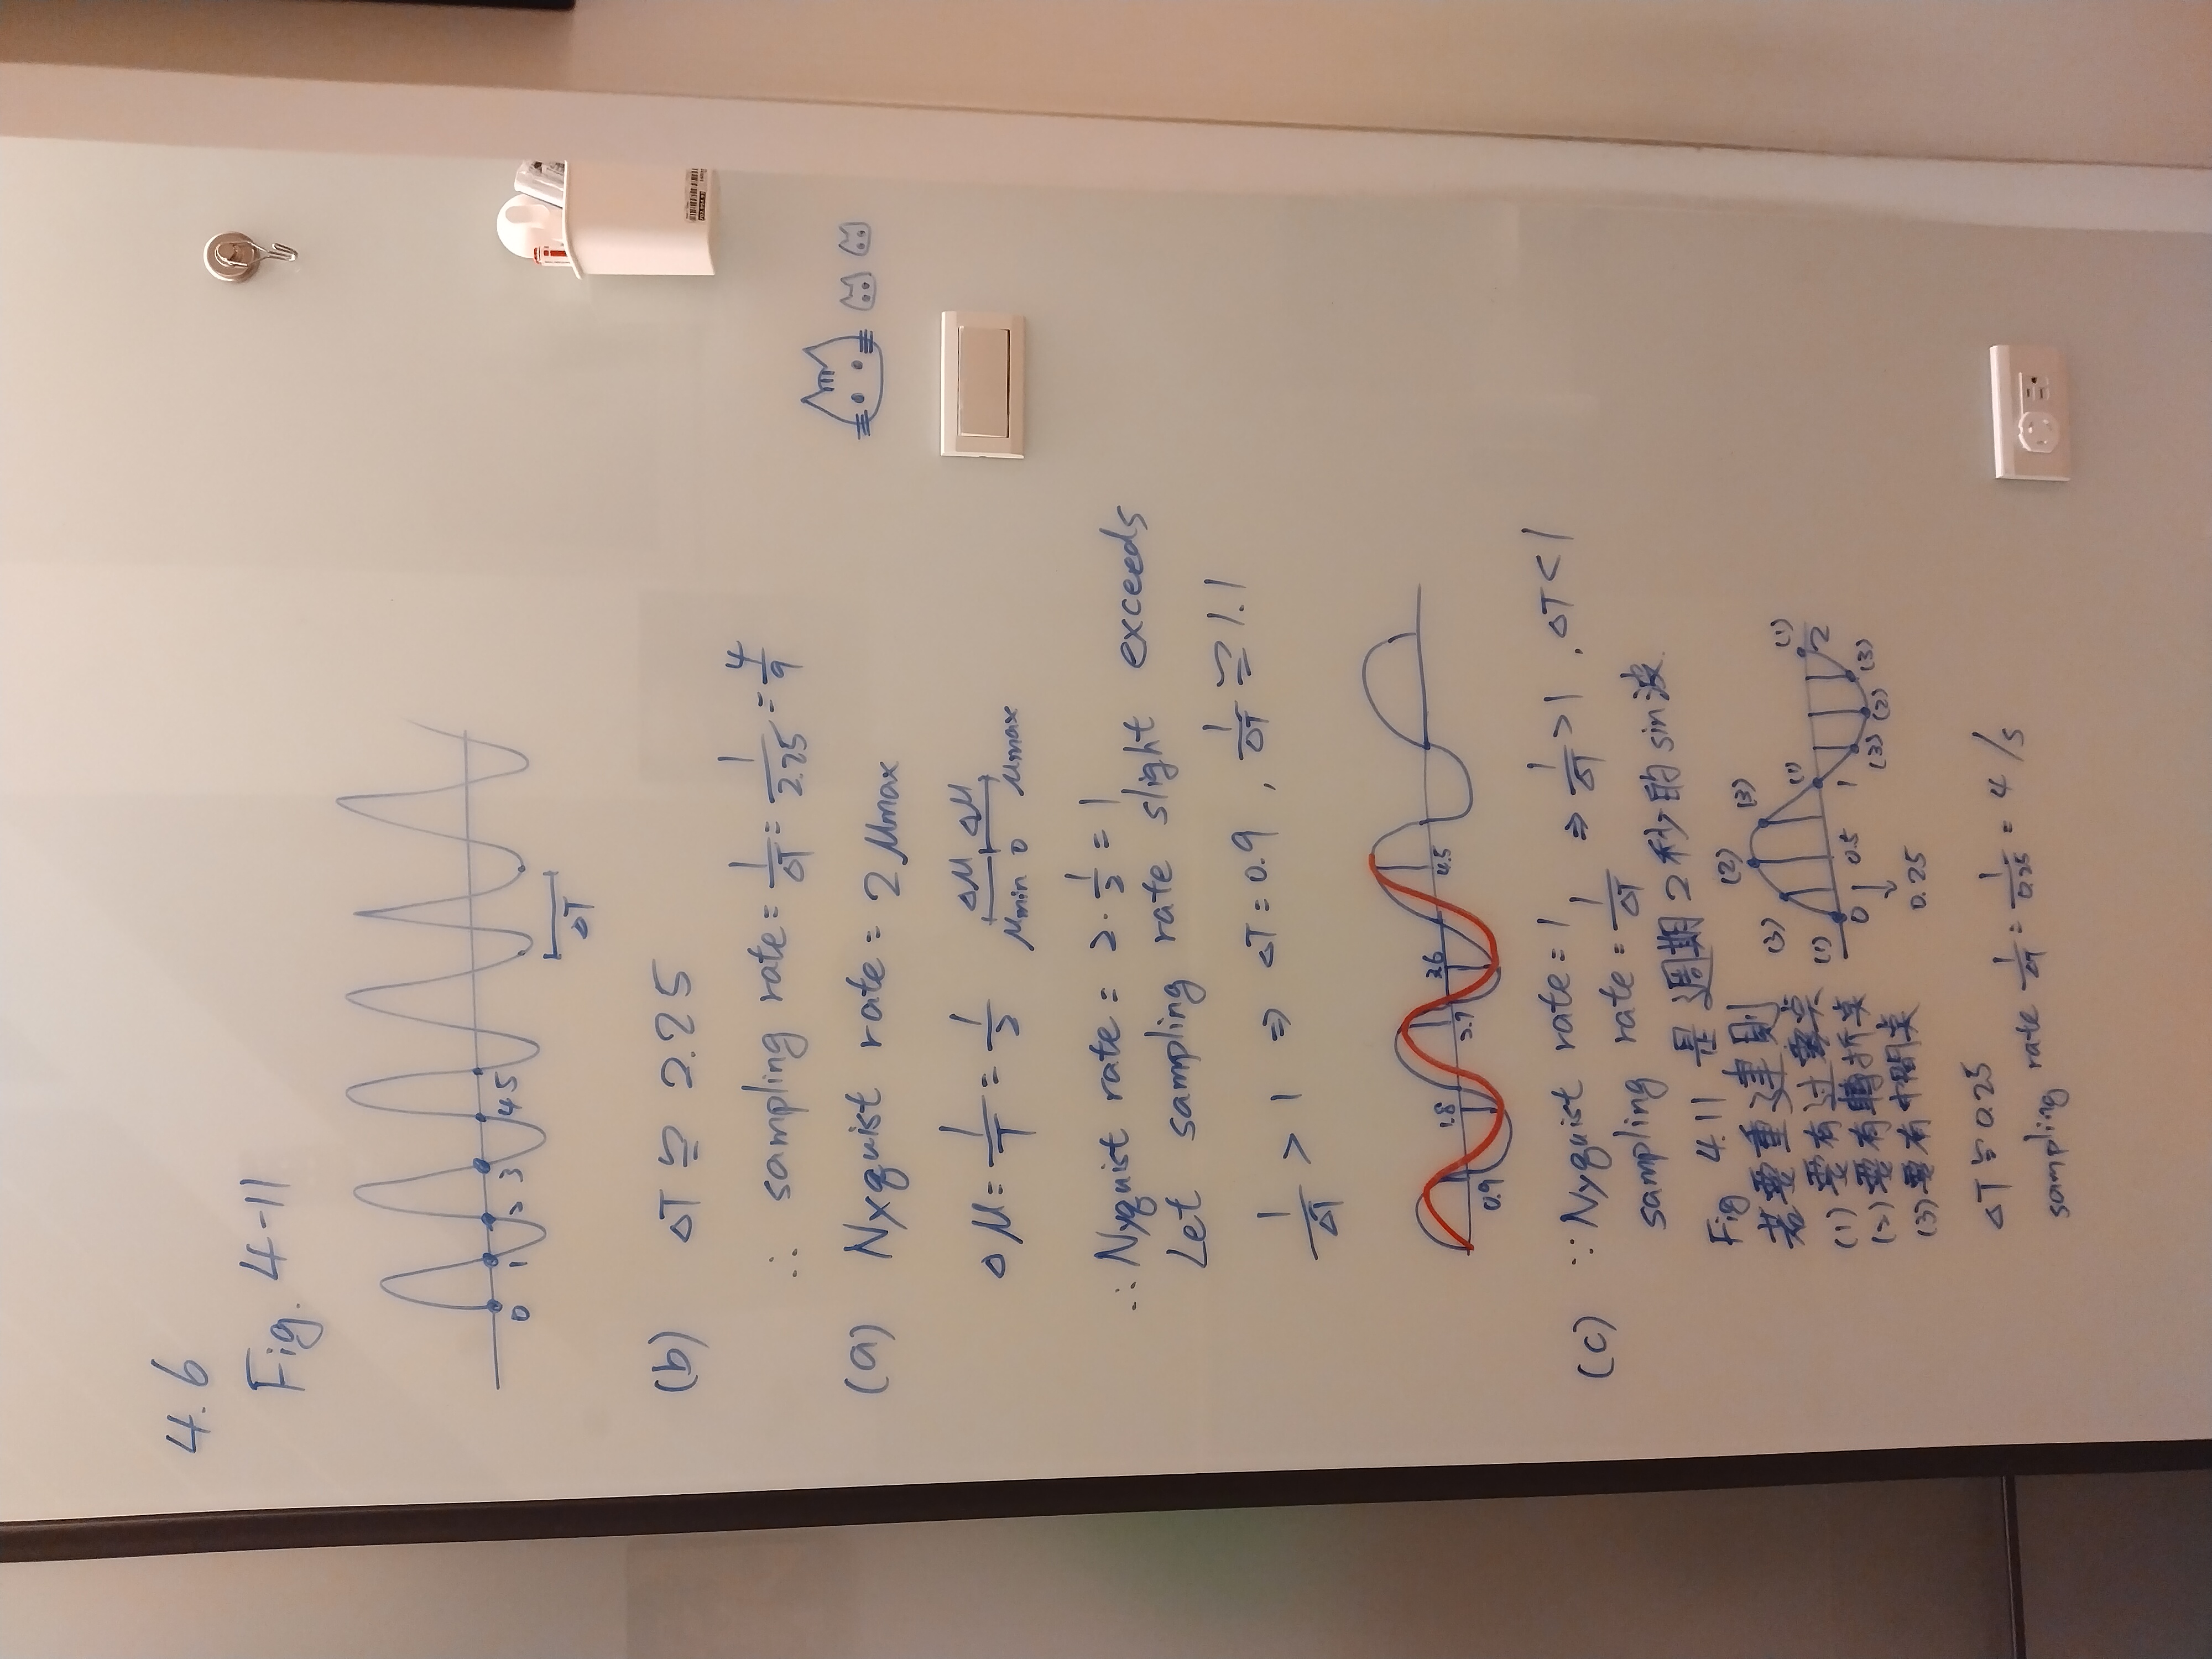 4.6
Fig. 4-11
0 1 2 3 4 5
ΔT
(b) ΔT ≌ 2.25
∴ sampling rate = 1/ΔT = 1/2.25 = 4/9
(a) Nyquist rate = 2 μmax
Δμ = 1/T = 1/2 Δμ Δμ
μmin 0 μmax
∴ Nyquist rate = 2 · 1/2 = 1
Let sampling rate slight exceeds
1/ΔT > 1 ⇒ ΔT = 0.9 , 1/ΔT ≌ 1.1
0.9 1.8 2.7 3.6 4.5
(c) ∵ Nyquist rate = 1
sampling rate = 1/ΔT ⇒ 1/ΔT > 1 , ΔT < 1
Fig 4.11 是週期2秒的sin波.
若要重建則
(1) 要有过零点
(2) 要有轉折点
(3) 要有中間点
(1) (3) (2) (3) (1) (3) (2) (3) (1)
0 0.5 1 2
0.25
ΔT ≌ 0.25
sampling rate 1/ΔT = 1/0.25 = 4 /s